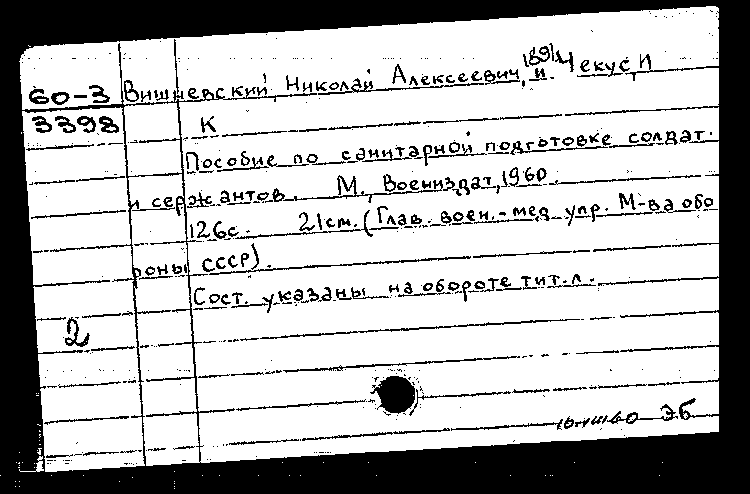 60-3 Вишневский, Николай Алексеевич, 1891, и. Чекус, И
3398 К
Пособие по санитарной подготовке солдат.
и сержантов. М., Воениздат, 1960.
126с. 21см. (Глав. воен.-мед упр. М-ва обо
роны СССР).
Сост. указаны на обороте тит.л.
2
ЭБ